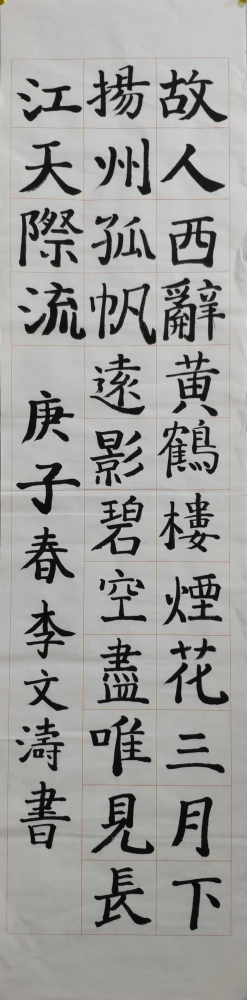 故人西辭黃鶴樓煙花三月下
揚州孤帆遠影碧空盡唯見長
江天際流 庚子春李文濤書